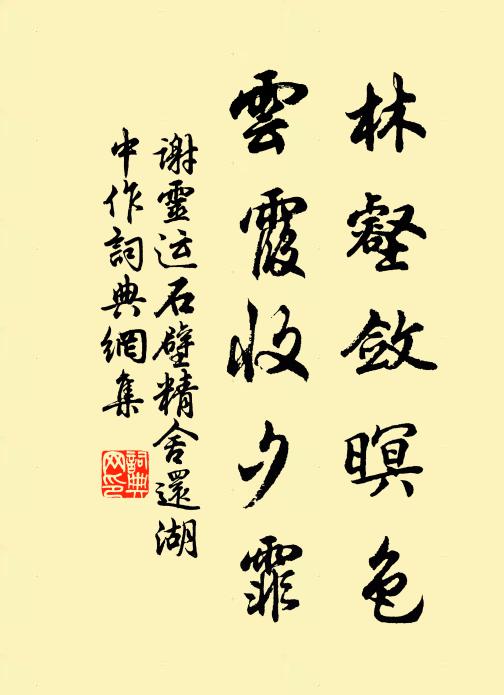 林壑斂暝色
雲霞收夕霏
謝靈运石壁精舍還湖
中作詞典網集
詞典
网印